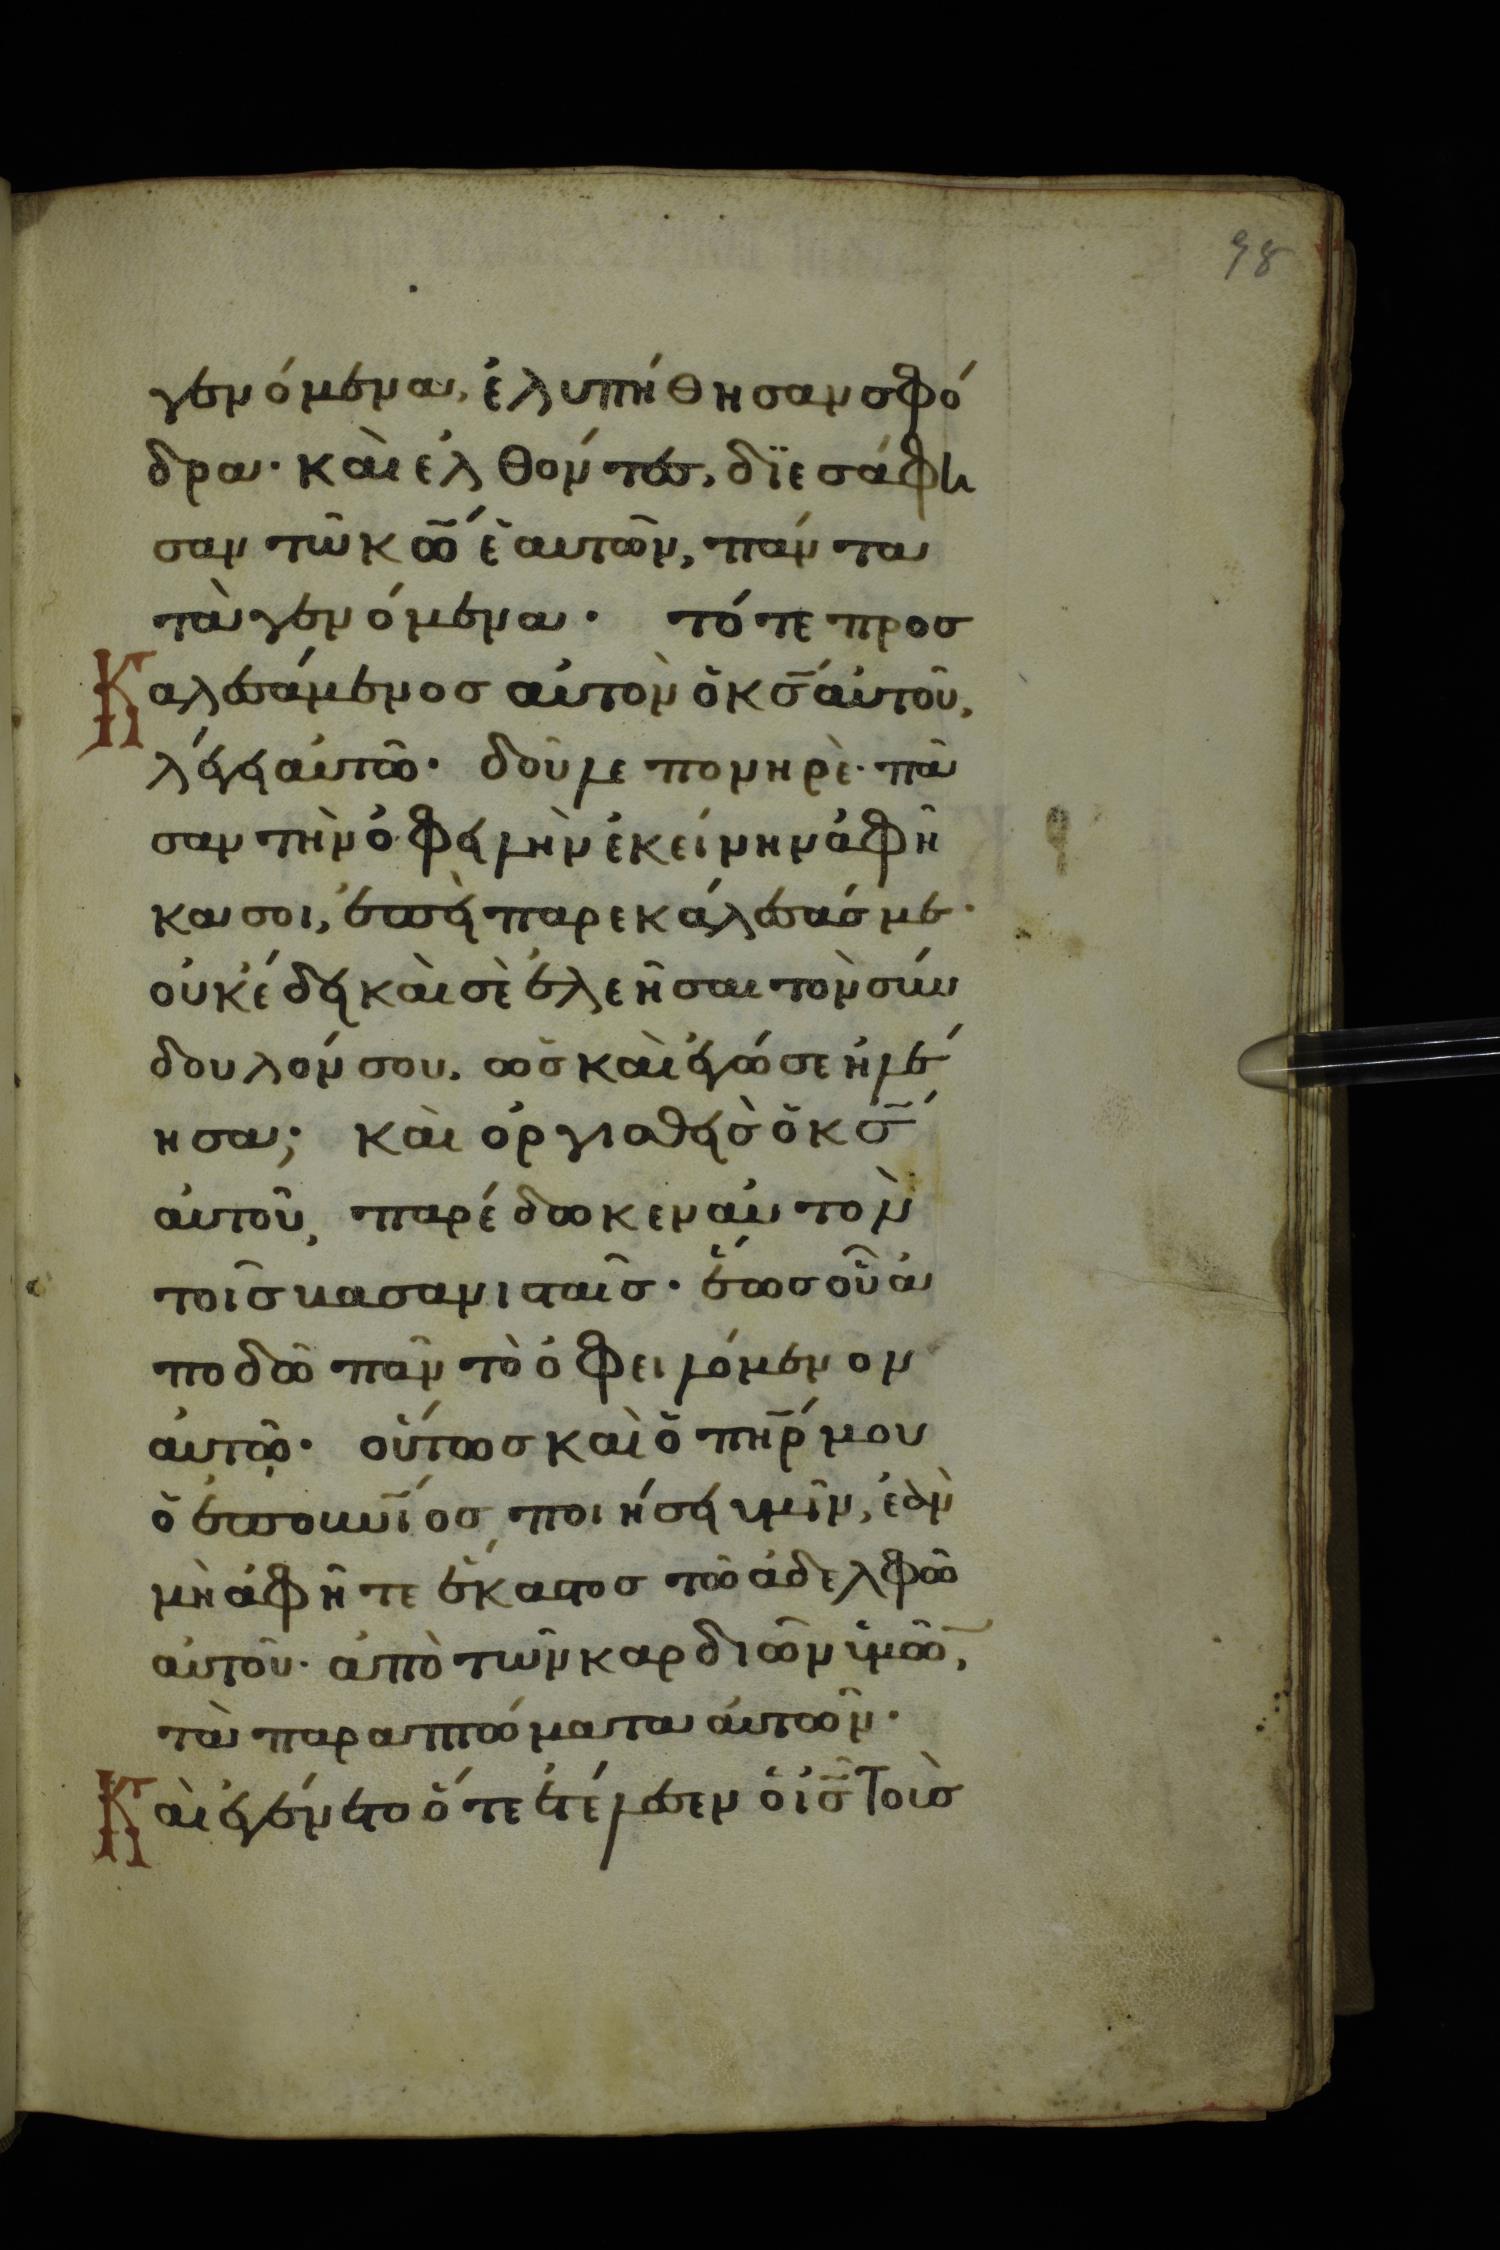 98
γενόμενα, ἐλυπήθησαν σφό
δρα· καὶ ἐλθόντες, διεσάφη
σαν τῶ κ̅ω̅ ἑαυτῶν, πάντα
τὰ γενόμενα· τότε προσ
Καλεσάμενος αὐτὸν ὁ κ̅ς̅ αὐτοῦ,
λέγει αὐτῶ· δοῦλε πονηρὲ· πᾶ
σαν τὴν ὀφειλὴν ἐκείνην ἀφῆ
κα σοι, ἐπεὶ παρεκάλεσάς με·
οὐκ ἔδει καὶ σὲ ἐλεῆσαι τὸν σύν
δουλόν σου, ὡς καὶ ἐγώ σε ἠλέ
ησα; καὶ ὀργισθεὶς ὁ κ̅ς̅
αὐτοῦ, παρέδωκεν αὐτὸν
τοῖς βασανισταῖς· ἕως οὗ ἀ
ποδῶ πᾶν τὸ ὀφειλόμενον
αὐτῶ· οὕτως καὶ ὁ π̅η̅ρ̅ μου
ὁ ἐπου̅ν̅ιος ποιήσει ὑμῖν, ἐὰν
μὴ ἀφῆτε ἕκαστος τῶ ἀδελφῶ
αὐτοῦ· ἀπὸ τῶν καρδιῶν ὑμῶ̅,
τὰ παραπτώματα αὐτῶν·
Καὶ ἐγένετο ὅτε ἐτέλεσεν ὁ ι̅ς̅ τοὺς